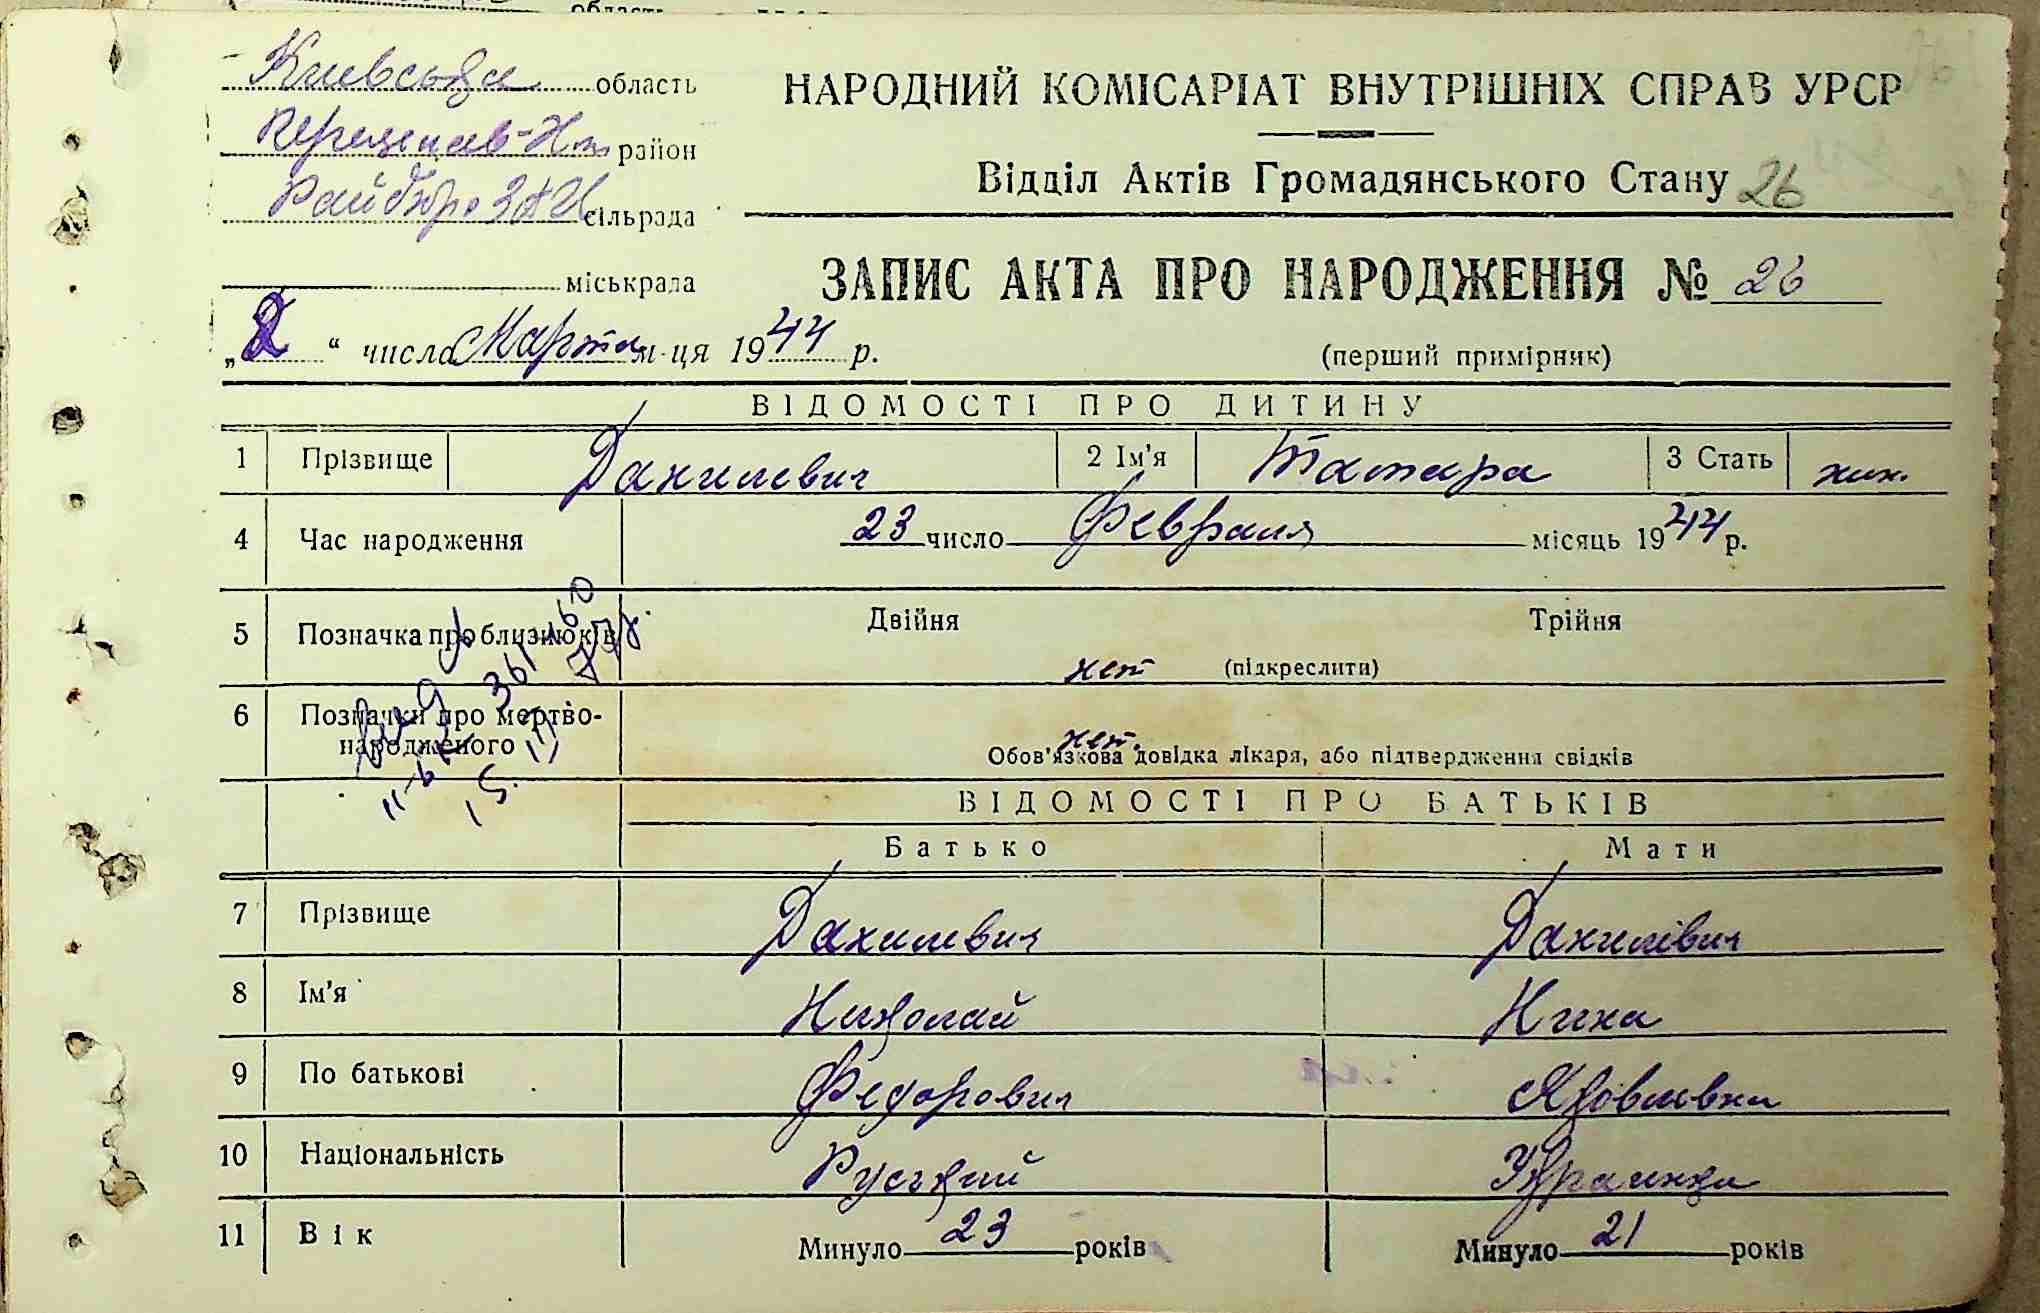 Киевская область
Переяслав-Хм район
Райбюро ЗАГС сільрада
міськрада
НАРОДНИЙ КОМІСАРІАТ ВНУТРІШНІХ СПРАВ УРСР
Відділ Актів Громадянського Стану 26
ЗАПИС АКТА ПРО НАРОДЖЕННЯ № 26
„2“ числа Марта м-ця 1944 р.
(перший примірник)
ВІДОМОСТІ ПРО ДИТИНУ
1 Прізвище Данилевич 2 Ім'я Тамара 3 Стать жин.
4 Час народження 23 число Февраля місяць 1944 р.
5 Позначка про близнюків Двійня Трійня
нет (підкреслити)
6 Позначки про мертво-
народженого нет.
Обов'язкова довідка лікаря, або підтвердження свідків
ВІДОМОСТІ ПРО БАТЬКІВ
Батько Мати
7 Прізвище Данилевич Данилевич
8 Ім'я Николай Нина
9 По батькові Федорович Яковлевна
10 Національність Руський Украинка
11 Вік Минуло 23 років Минуло 21 років